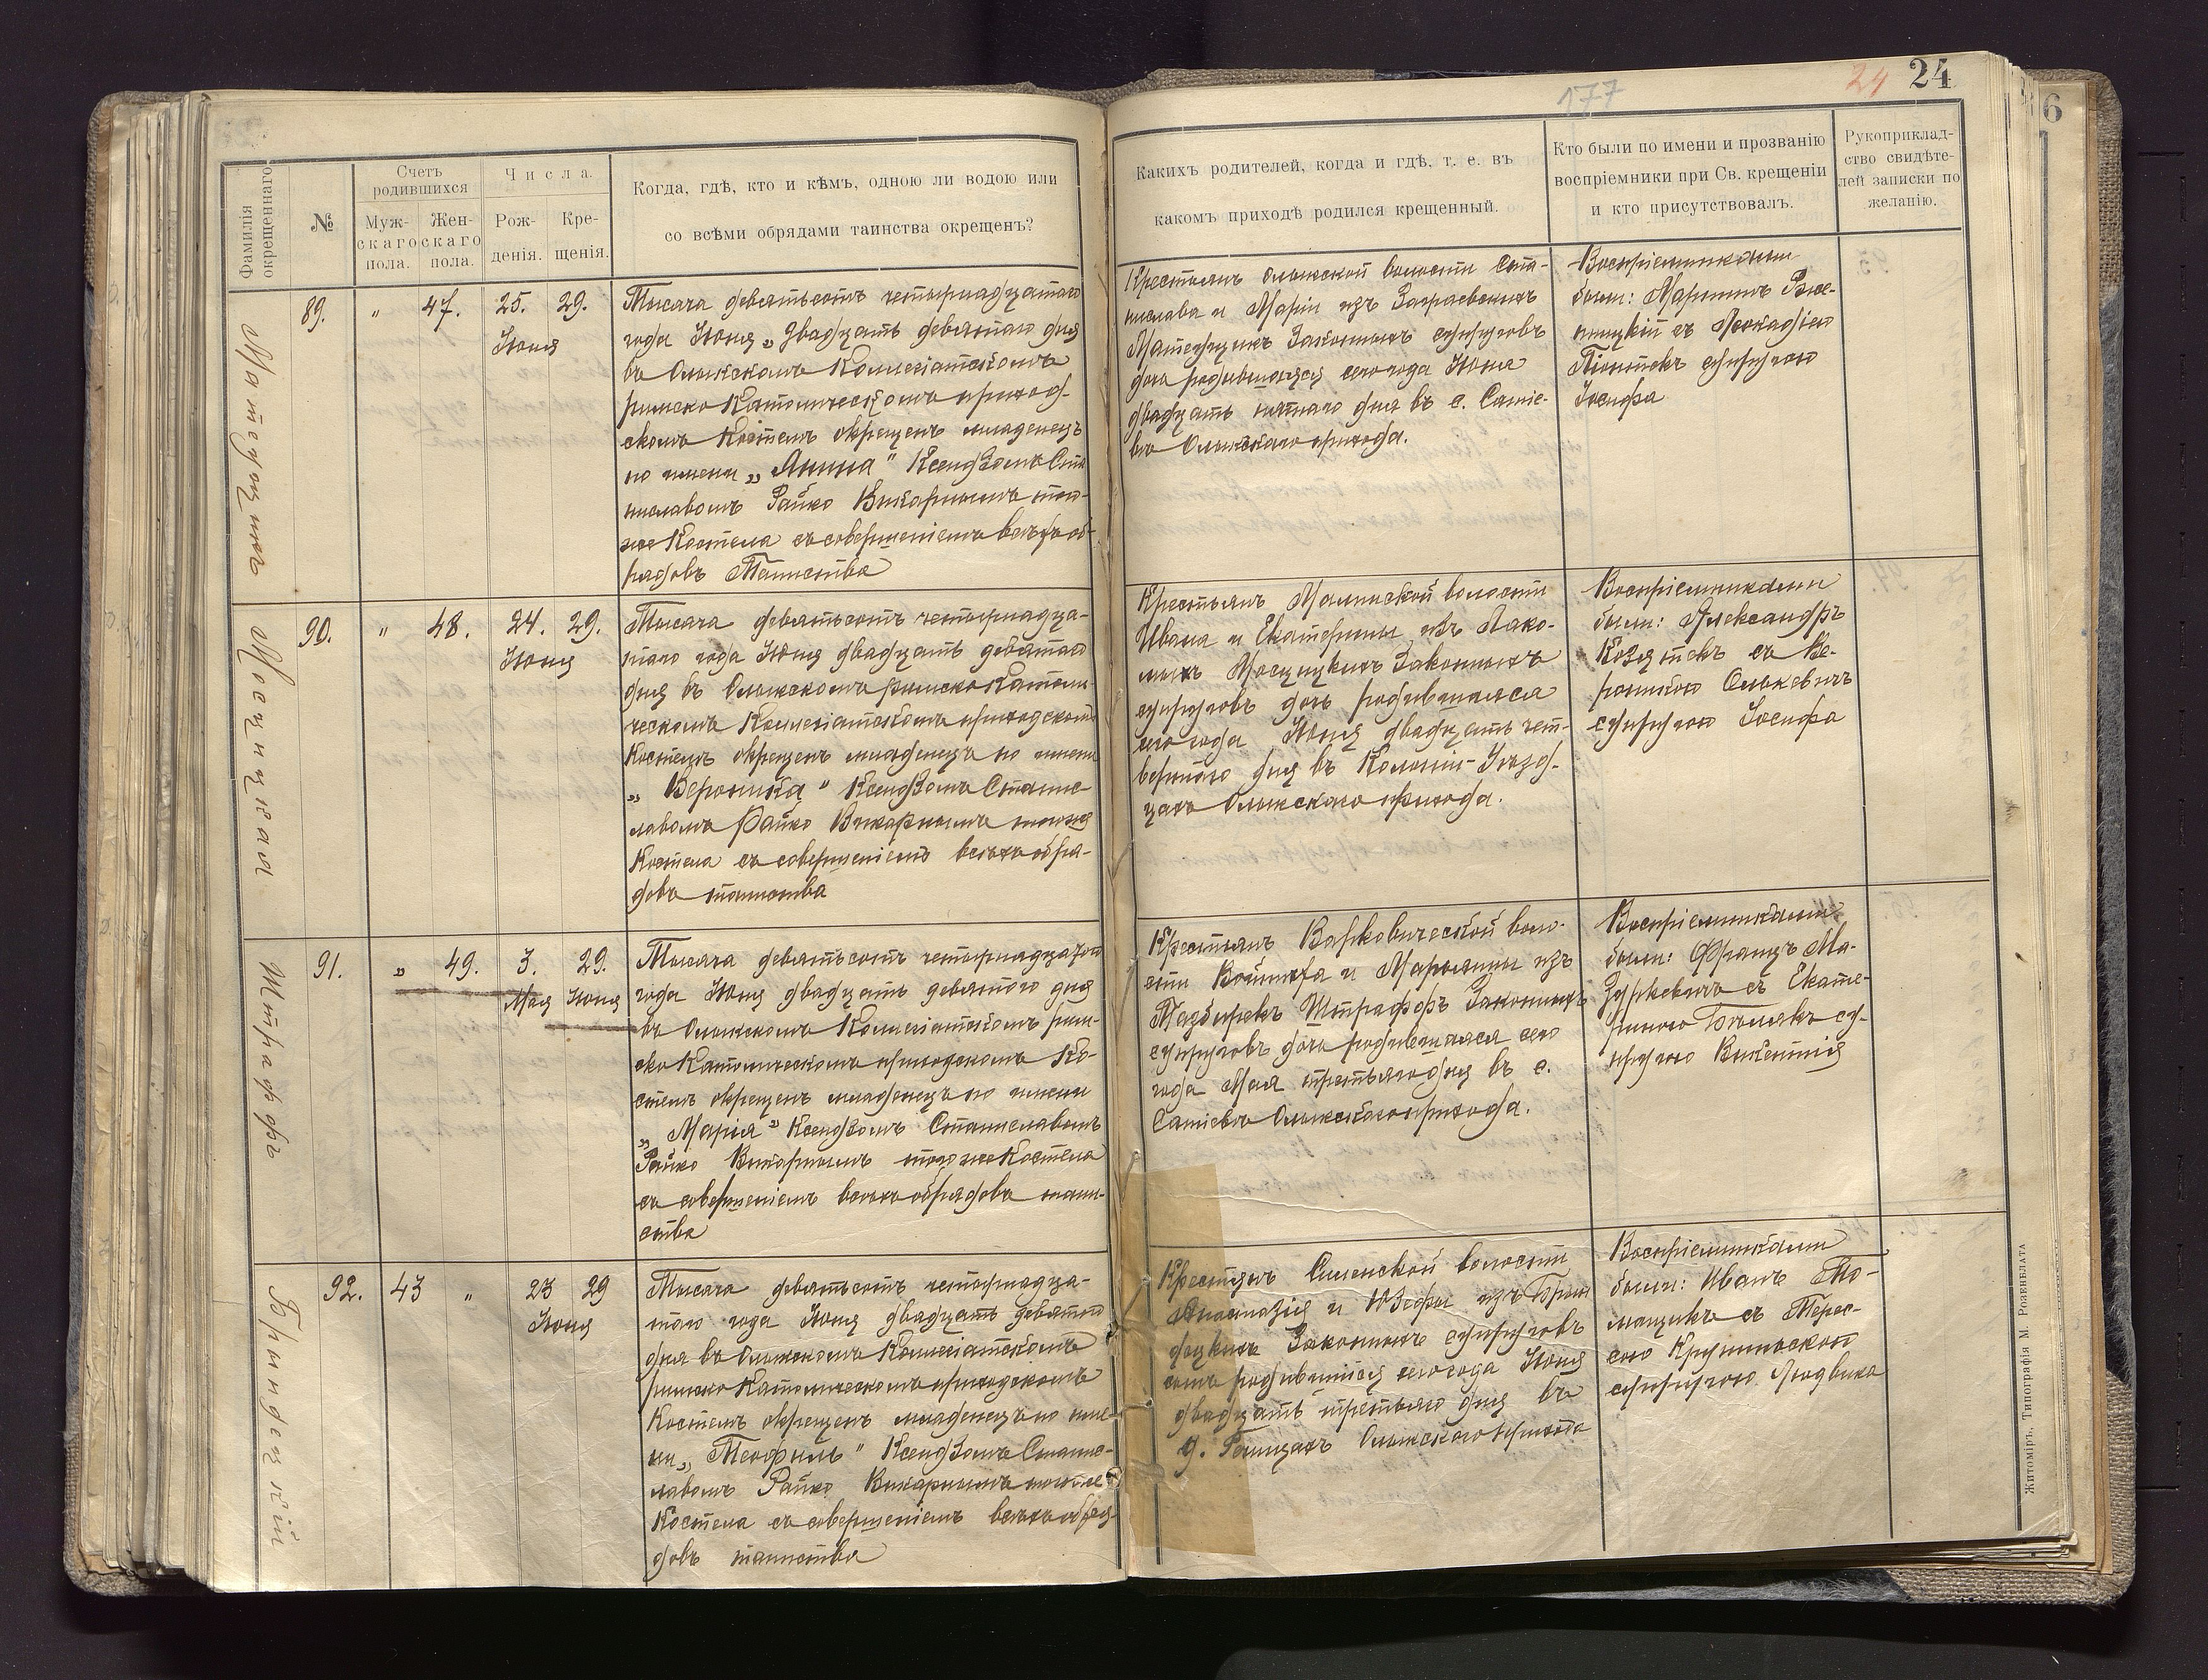 24
24
177
6
Фамилія окрещеннаго
№
Счетъ родившихся
Муж-
скаго
пола.
Жен-
скаго
пола.
Числа.
Рож-
денія.
Кре-
щенія.
Когда, гдѣ, кто и кѣмъ, одною ли водою или
со всѣми обрядами таинства окрещенъ?
Какихъ родителей, когда и гдѣ, т. е. въ
какомъ приходѣ родился крещенный.
Кто были по имени и прозванію
воспріемники при Св. крещеніи
и кто присутствовалъ.
Рукоприклад-
ство свидѣте-
лей записки по
желанію.
89. " 47. 25. 29.
Іюня
Тысяча девятьсотъ четырнадцатаго
года Іюня „ двадцать девятаго дня
въ Олыкскомъ Коллегіатскомъ
римско Католическомъ приход-
скомъ Костелѣ окрещенъ младенецъ
по имени „Янина" Ксендзомъ Ста
ниславомъ Райко Викарнымъ того-
же Костела съ совершеніемъ всѣхъ об-
рядовъ Таинства
Крестьянъ Олыкской волости Ста-
нислава и Маріи изъ
законныхъ супруговъ
дочь родившаяся сего года Іюня
двадцать пятаго дня въ с. Сатіе-
вѣ Олыкскаго прихода.
Воспріемниками
были: Мартинъ
съ Леокадіею
Піонтекъ супругою
Іосифа
90. " 48. 24. 29.
Іюня
Мосцицкая
Тысяча девятьсотъ четырнадца-
таго года Іюня двадцать девятаго
дня въ Олыкскомъ римско Католи-
ческомъ Коллегіатскомъ приходскомъ
Костелѣ окрещенъ младенецъ по имени
„Вероника" Ксендзомъ Станис-
лавомъ Райко Викарнымъ тогоже
Костела съ совершеніемъ всѣхъ обря-
довъ таинства
Крестьянъ Малинской волости
Ивана и Екатерины изъ Лако-
мыхъ Мосцицкихъ Законныхъ
супруговъ дочь родившаяся
сего года Іюня двадцать чет-
вертаго дня въ Колоніи-Уѣзд-
цахъ Олыкскаго прихода.
Воспріемниками
были: Александръ
съ Ве-
роникою Олькевичъ
супругою Іосифа
91. „ 49. 3. 29.
Мая Іюня
Штрафъ
Тысяча девятьсотъ четырнадцатаго
года Іюня двадцать девятаго дня
въ Олыкскомъ Коллегіатскомъ рим-
ско Католическомъ приходскомъ Ко-
стелѣ окрещенъ младенецъ по имени
„Марія" Ксендзомъ Станиславомъ
Райко Викарнымъ тогоже Костела
съ совершеніемъ всѣхъ обрядовъ таин-
ства
Крестьянъ Варковической воло-
сти Войтѣха и Маріанны изъ
Законныхъ
супруговъ дочь родившаяся сего
года Мая третьяго дня въ с.
Сатіевѣ Олыкскаго прихода.
Воспріемниками
были: Францъ Ма-
зуркевичъ съ Екате-
риною су-
пругою Викентія
92. 43 „ 23 29
Іюня
Бриндецкій
Тысяча девятьсотъ четырнадца-
таго года Іюня двадцать девятаго
дня въ Олыкскомъ Коллегіатскомъ
римско Католическомъ приходскомъ
Костелѣ окрещенъ младенецъ по име-
ни „Теофиль" Ксендзомъ Станис-
лавомъ Райко Викарнымъ тогоже
Костела съ совершеніемъ всѣхъ обря-
довъ таинства
Крестьянъ волости
и Юзефы изъ
Законныхъ супруговъ
сынъ родившійся сего года Іюня
двадцать третьяго дня въ
д. Олыкскаго прихода
Воспріемниками
были: Иванъ
съ Терес-
сою
супругою Людвика
Житоміръ, Типографія М. Розенблата